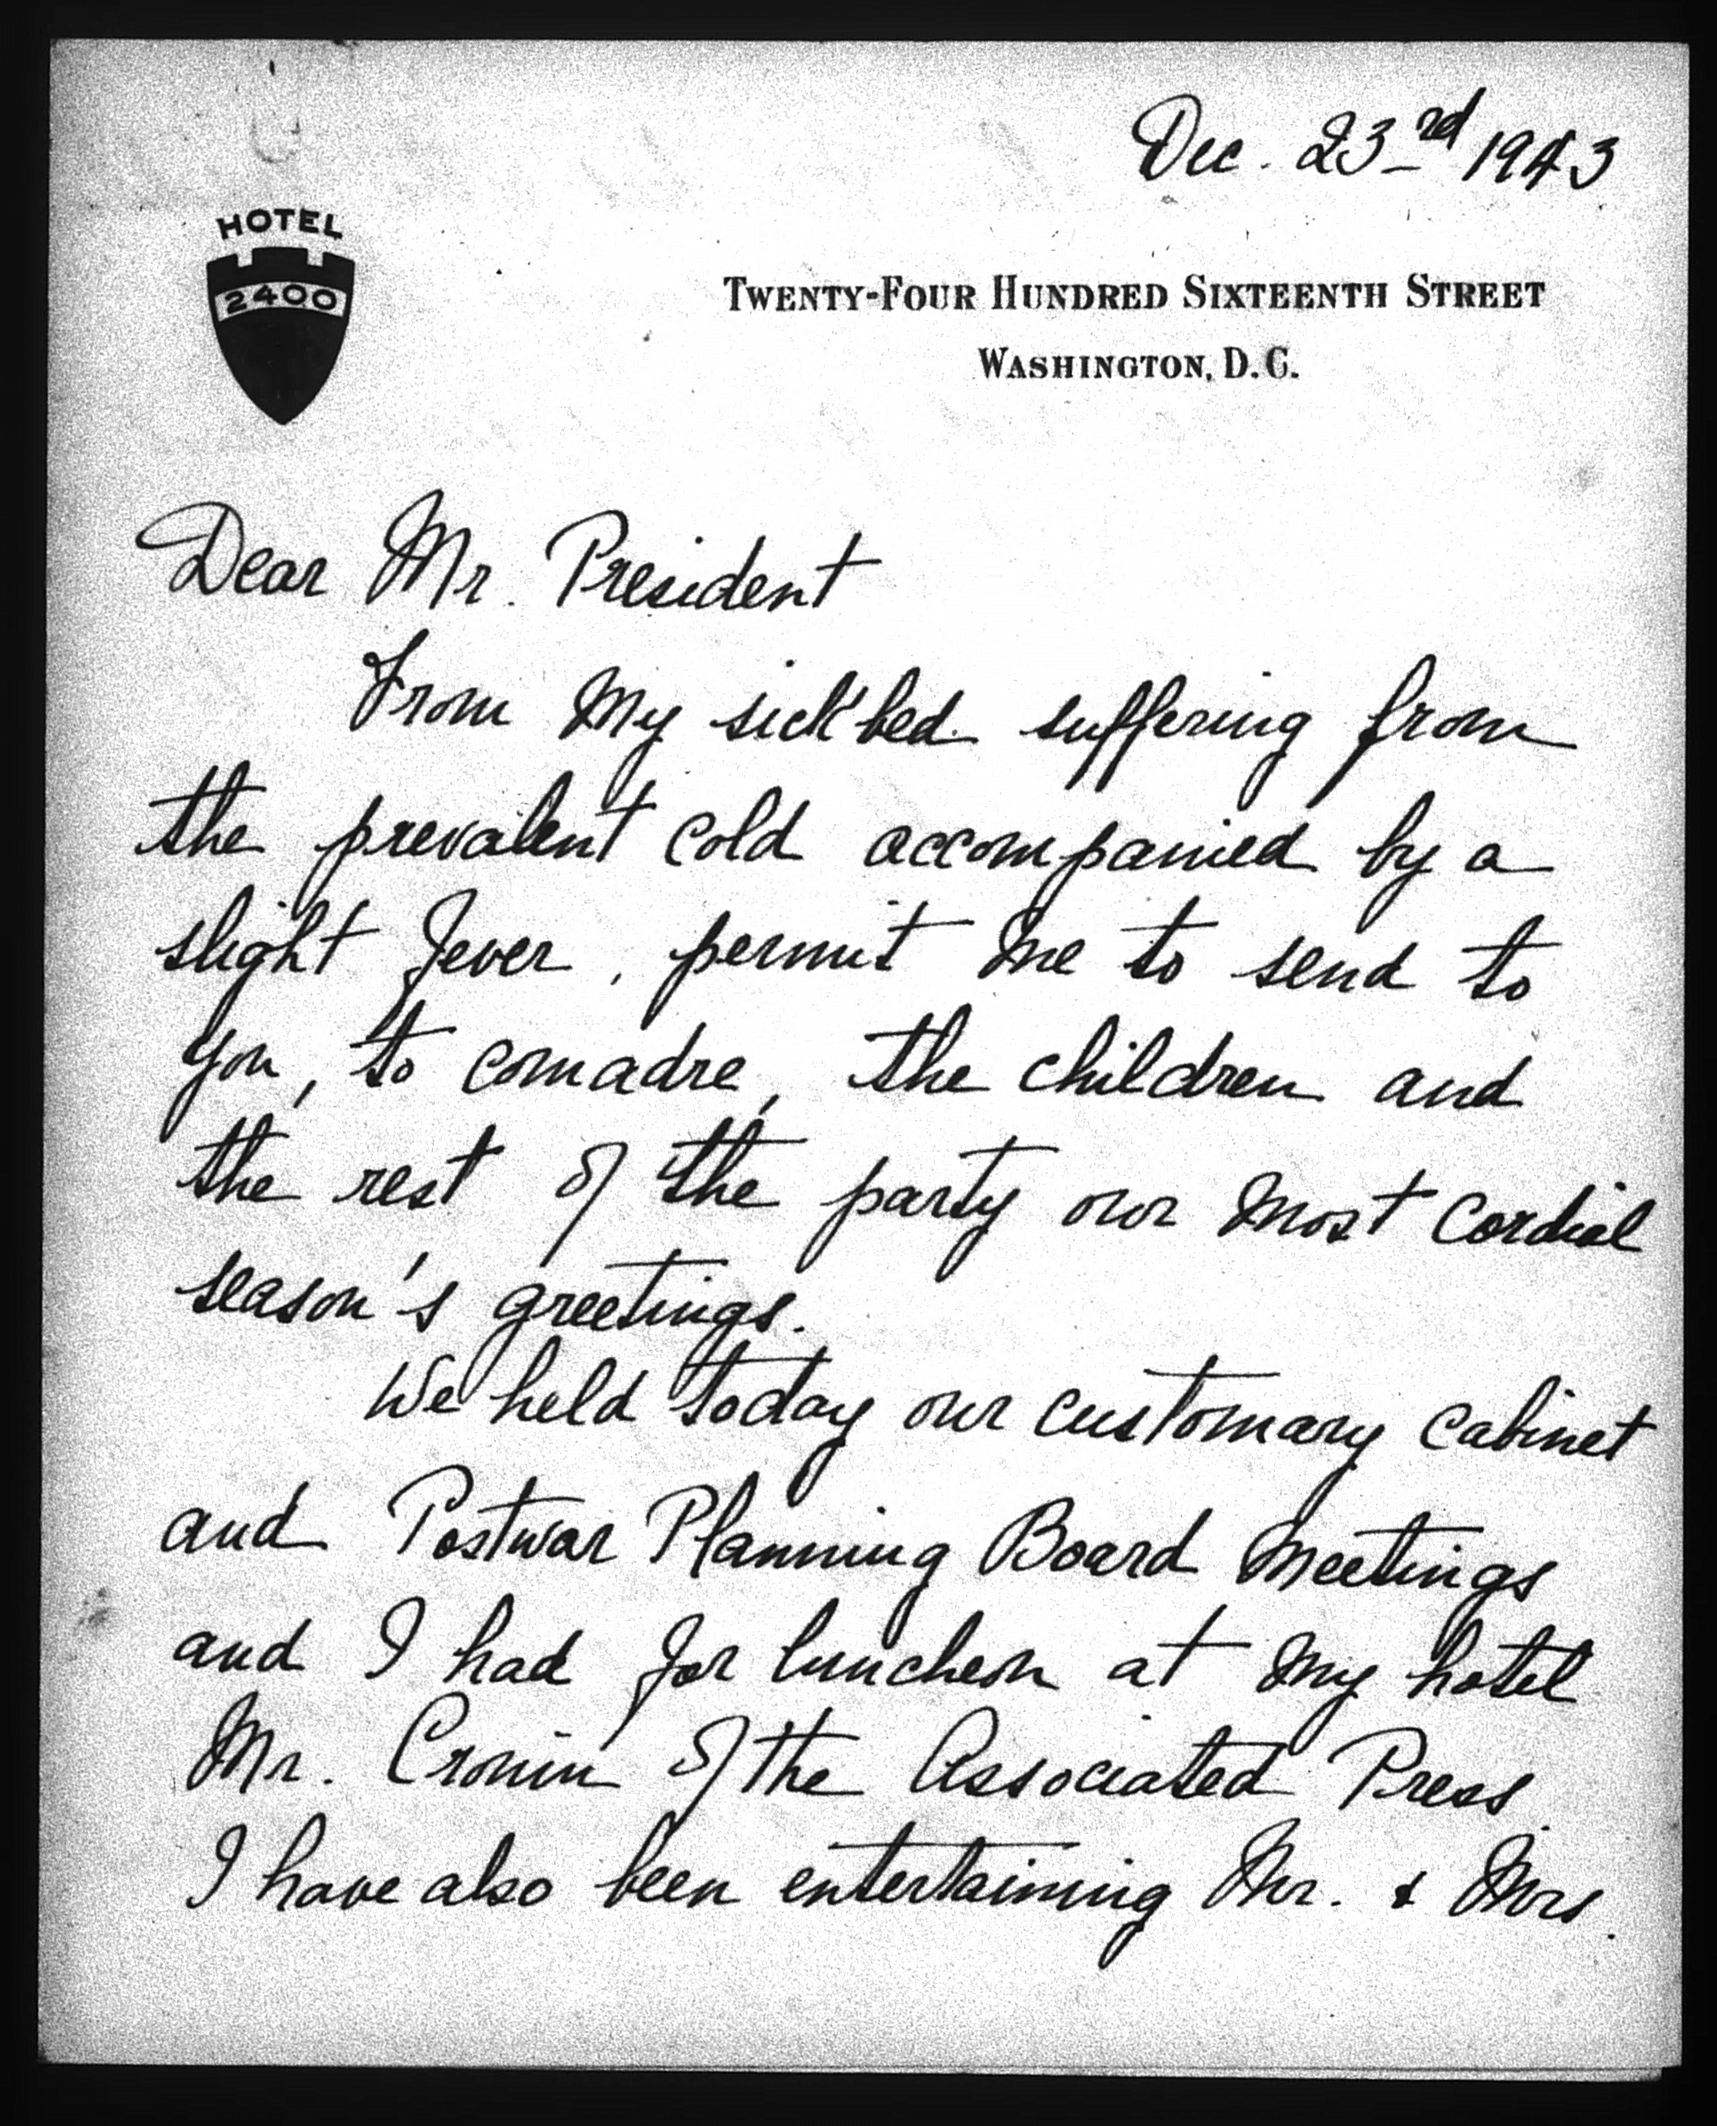 Dec. 23rd 1943
HOTEL
2400
TWENTY-FOUR HUNDRED SIXTEENTH STREET
WASHINGTON, D.C.
Dear Mr. President
From my sick bed suffering from
the prevalent cold accompanied by a
slight fever, permit me to send to
you, to comadre, the children and
the rest of the party our most cordial
season's greetings.
We held today our customary cabinet
and Postwar Planning Board meetings
and I had for luncheon at my hotel
Mr. Cronin of the Associated Press
I have also been entertaining Mr. & Mrs.